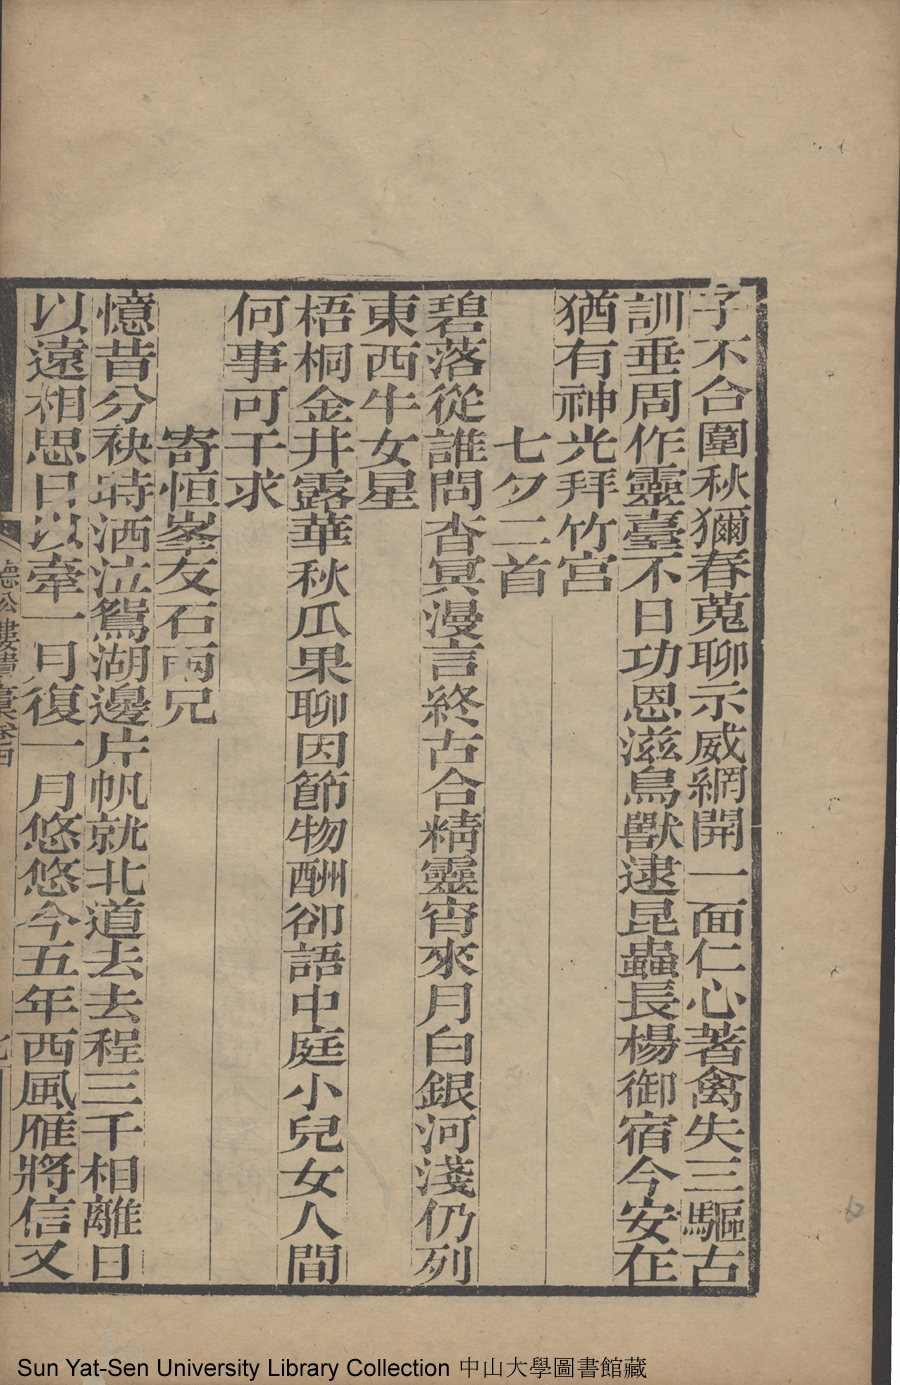 子不合圍秋獮春蒐聊示威網開一面仁心著禽失三驅古
訓垂周作靈臺不日功恩滋鳥獸逮昆蟲長楊御宿今安在
猶有神光拜竹宮
七夕二首
碧落從誰問杳冥漫言終古合精靈宵來月白銀河淺仍列
東西牛女星
梧桐金井露華秋瓜果聊因節物酬卻語中庭小兒女人間
何事可干求
寄恒峯友石兩兄
憶昔分袂時洒泣鴛湖邊片帆就北道去去程三千相離日
以遠相思日以牽一月復一月悠悠今五年西風雁將信又
聽松樓遺稾卷四
Sun Yat-Sen University Library Collection 中山大學圖書館藏